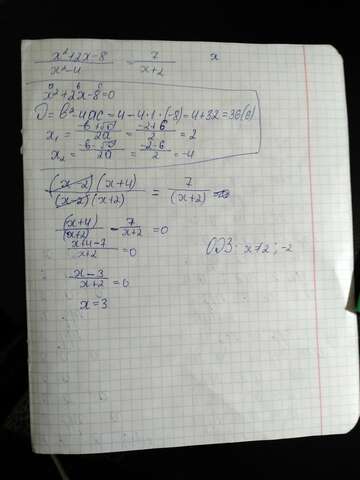 (x²+2x-8)/(x²-4) = 7/(x+2) x
a b c
x²+2x-8=0
D=b²-4ac=4-4·1·(-8)=4+32=36(6)
x₁ = (-b+√D)/2a = (-2+6)/2 = 2
x₂ = (-b-√D)/2a = (-2-6)/2 = -4
(x-2)(x+4)/(x-2)(x+2) = 7/(x+2)
(x+4)/(x+2) - 7/(x+2) = 0
(x+4-7)/(x+2) = 0 ОДЗ: x≠2;-2
(x-3)/(x+2) = 0
x=3